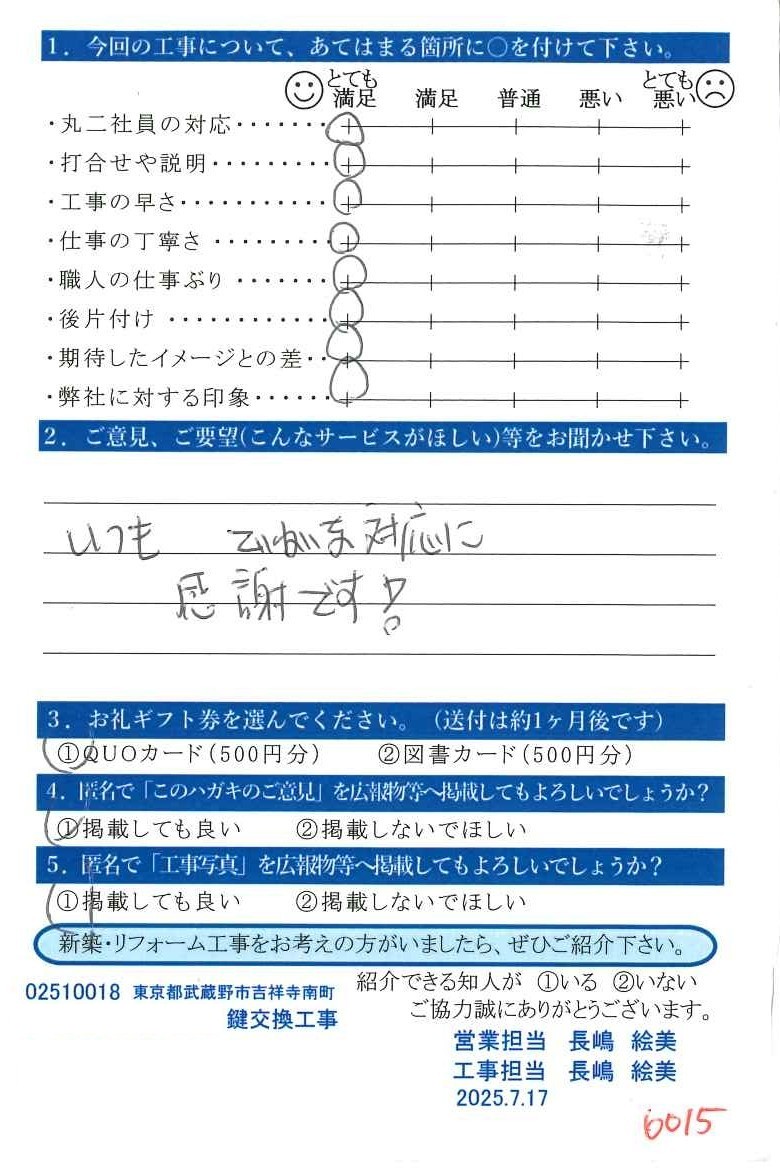 1．今回の工事について、あてはまる箇所に○を付けて下さい。
とても満足 満足 普通 悪い とても悪い
・丸二社員の対応・・・・・・・
・打合せや説明・・・・・・・・・
・工事の早さ・・・・・・・・・・・
・仕事の丁寧さ ・・・・・・・・・
・職人の仕事ぶり ・・・・・・・
・後片付け ・・・・・・・・・・・・
・期待したイメージとの差・・
・弊社に対する印象・・・・・・
2．ご意見、ご要望(こんなサービスがほしい)等をお聞かせ下さい。
いつも ていねいな対応に
感謝です!
3．お礼ギフト券を選んでください。（送付は約1ヶ月後です）
①QUOカード(500円分) ②図書カード(500円分)
4．匿名で「このハガキのご意見」を広報物等へ掲載してもよろしいでしょうか？
①掲載しても良い ②掲載しないでほしい
5．匿名で「工事写真」を広報物等へ掲載してもよろしいでしょうか？
①掲載しても良い ②掲載しないでほしい
新築・リフォーム工事をお考えの方がいましたら、ぜひご紹介下さい。
紹介できる知人が ①いる ②いない
ご協力誠にありがとうございます。
02510018 東京都武蔵野市吉祥寺南町
鍵交換工事
営業担当 長嶋 絵美
工事担当 長嶋 絵美
2025.7.17
6015